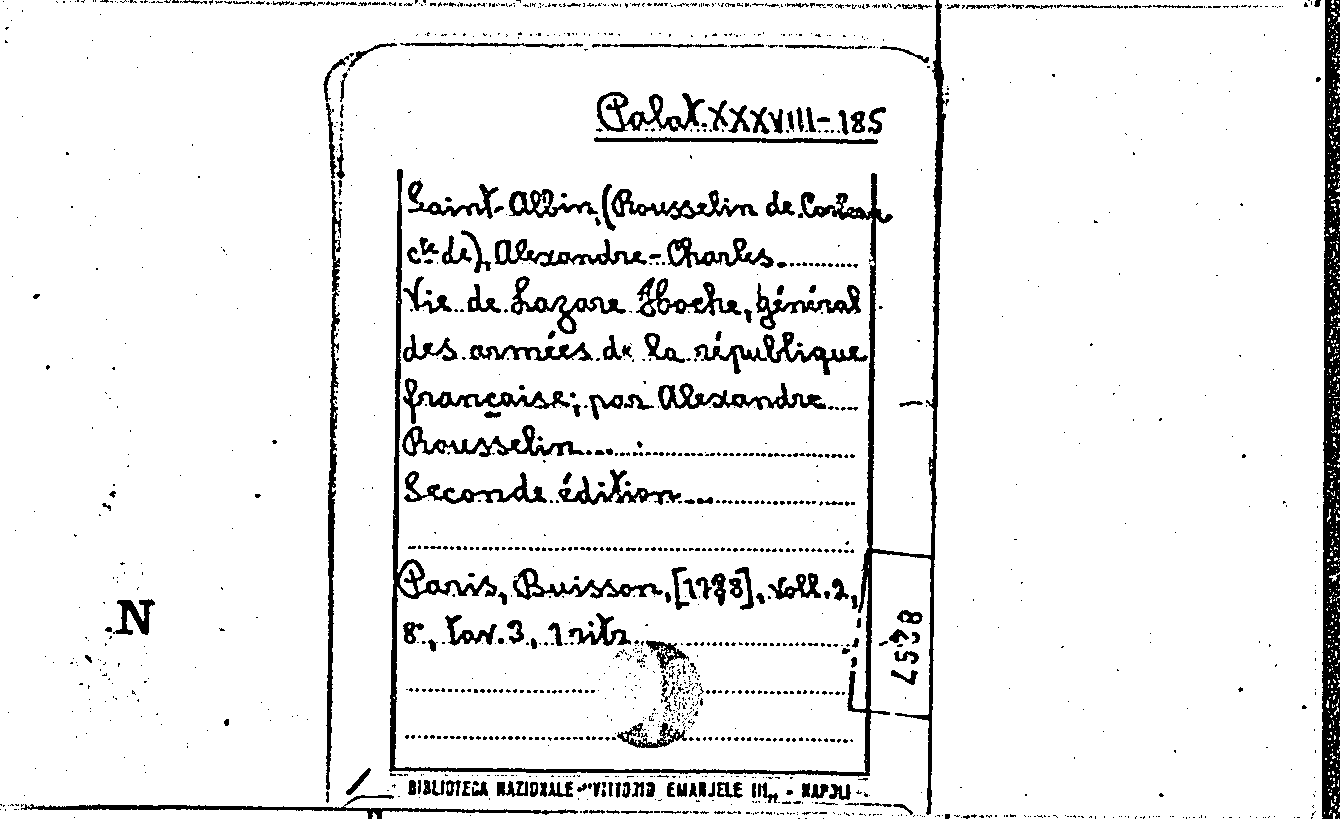 Palat. XXXVIII-185
Saint-Albin, (Rousselin de
c.te de), Alexandre-Charles.
Vie de Lazare Hoche, général
des armées de la république
française; par Alexandre
Rousselin...
Seconde édition...
Paris, Buisson, , voll. 2,
8°, tav. 3, 1 ritr.
N
BIBLIOTECA NAZIONALE "VITTORIO EMANUELE III" - NAPOLI